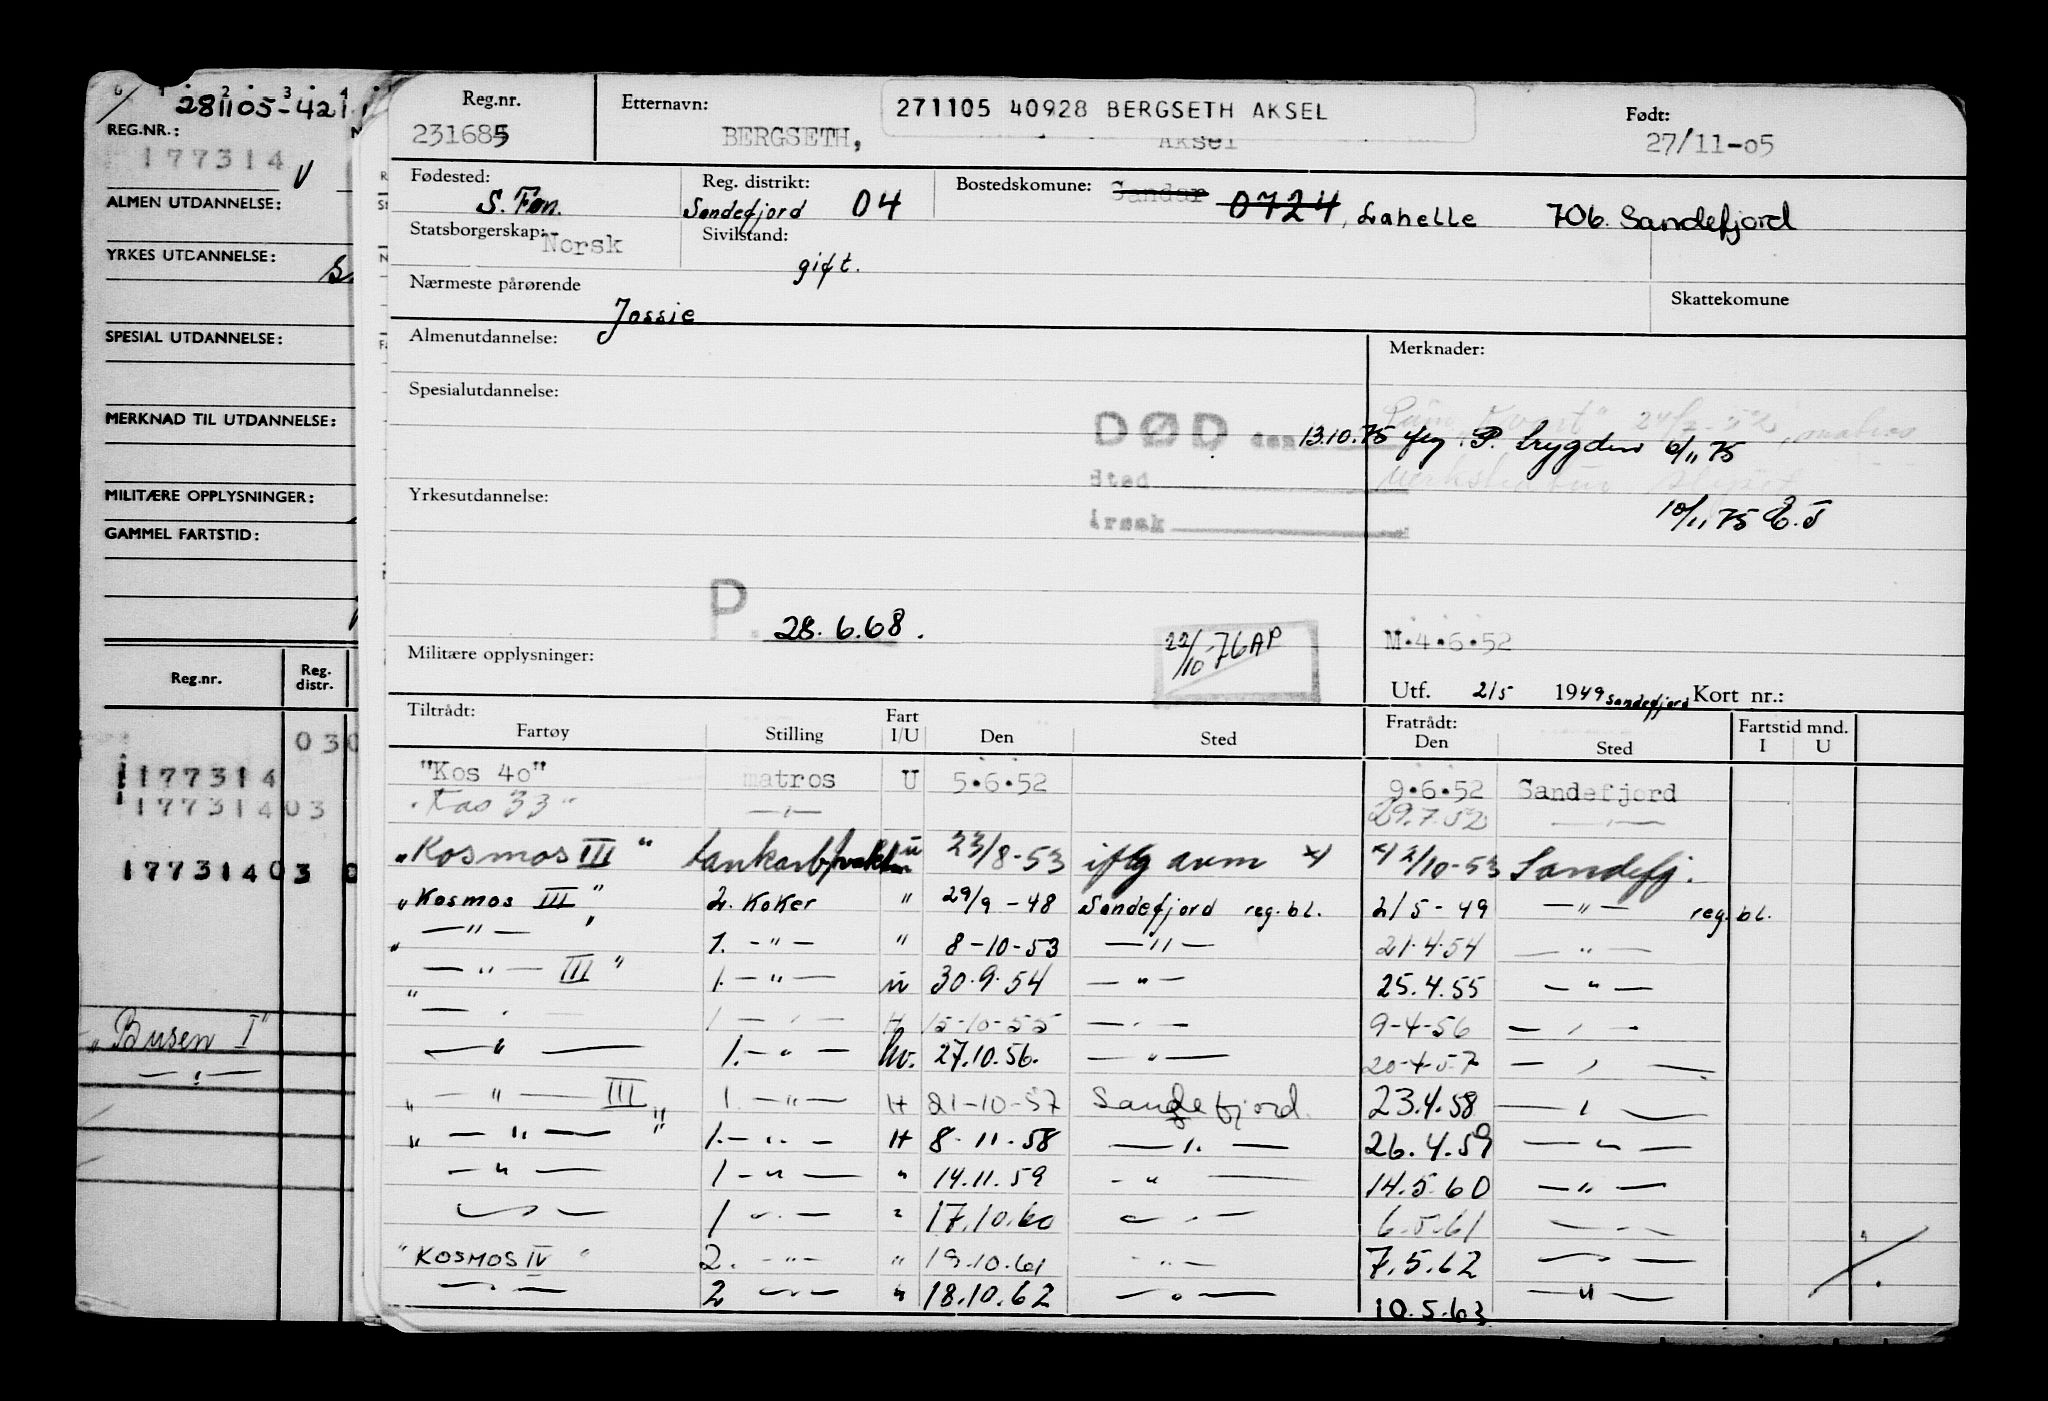 6 1 2 3 4
281105-421
REG.NR.:
177314 V
ALMEN UTDANNELSE:
YRKES UTDANNELSE:
SPESIAL UTDANNELSE:
MERKNAD TIL UTDANNELSE:
MILITÆRE OPPLYSNINGER:
GAMMEL FARTSTID:
Reg.nr. Reg. distr.
030
177314
177314 03
177314 03 0
"Busen I"
— " —
Reg.nr. 231685
Etternavn: BERGSETH, Aksel
271105 40928 BERGSETH AKSEL
Født: 27/11-05
Fødested: S. Fon.
Reg. distrikt: Sandefjord 04
Bostedskomune: Sandar 0724, Lahelle 706. Sandefjord
Statsborgerskap: Norsk
Sivilstand: gift.
Nærmeste pårørende Jossie
Skattekomune
Almenutdannelse:
Merknader:
Spesialutdannelse:
DØD den 13.10.75 iflg P. trygden 6/11 75
sted
årsak
10/11 75 E.T
Yrkesutdannelse:
P. 28.6.68.
22/10-76 AP
M.4.6.52
Militære opplysninger:
Utf. 2/5 1949 Sandefjord Kort nr.:
Tiltrådt: Fartøy Stilling Fart I/U Den Sted Fratrådt: Den Sted Fartstid mnd. I U
"Kos 40" matros U 5.6.52 9.6.52 Sandefjord
"Kos 33" — " — 29.7.52 — " —
"Kosmos III" u 23/8-53 iflg avm x) x) 2/10-53 Sandefj.
"Kosmos III" 2. Koker " 29/9-48 Sandefjord reg.bl. 2/5-49 — " — reg.bl.
" — " — " 1. — " — " 8-10-53 — " — 21.4.54 — " —
— " — III " 1. — " — u 30.9.54 — " — 25.4.55 — " —
" — " — 1 — " — H 15-10-55 — " — 9-4-56 — " —
— " — 1. — " — hv. 27.10.56. — " — 20-4-57 — " —
" — " — III " 1. — " — H 21-10-57 Sandefjord. 23.4.58 — " —
" — " — " 1. — " — H 8.11.58 — " — 26.4.59 — " —
— " — 1 — " — " 14.11.59 — " — 14.5.60 — " —
— " — 1 — " — " 17.10.60 — " — 6.5.61 — " —
"KOSMOS IV" 2. — " — " 19.10.61 — " — 7.5.62 — " —
— " — 2 — " — " 18.10.62 — " — 10.5.63 — " —